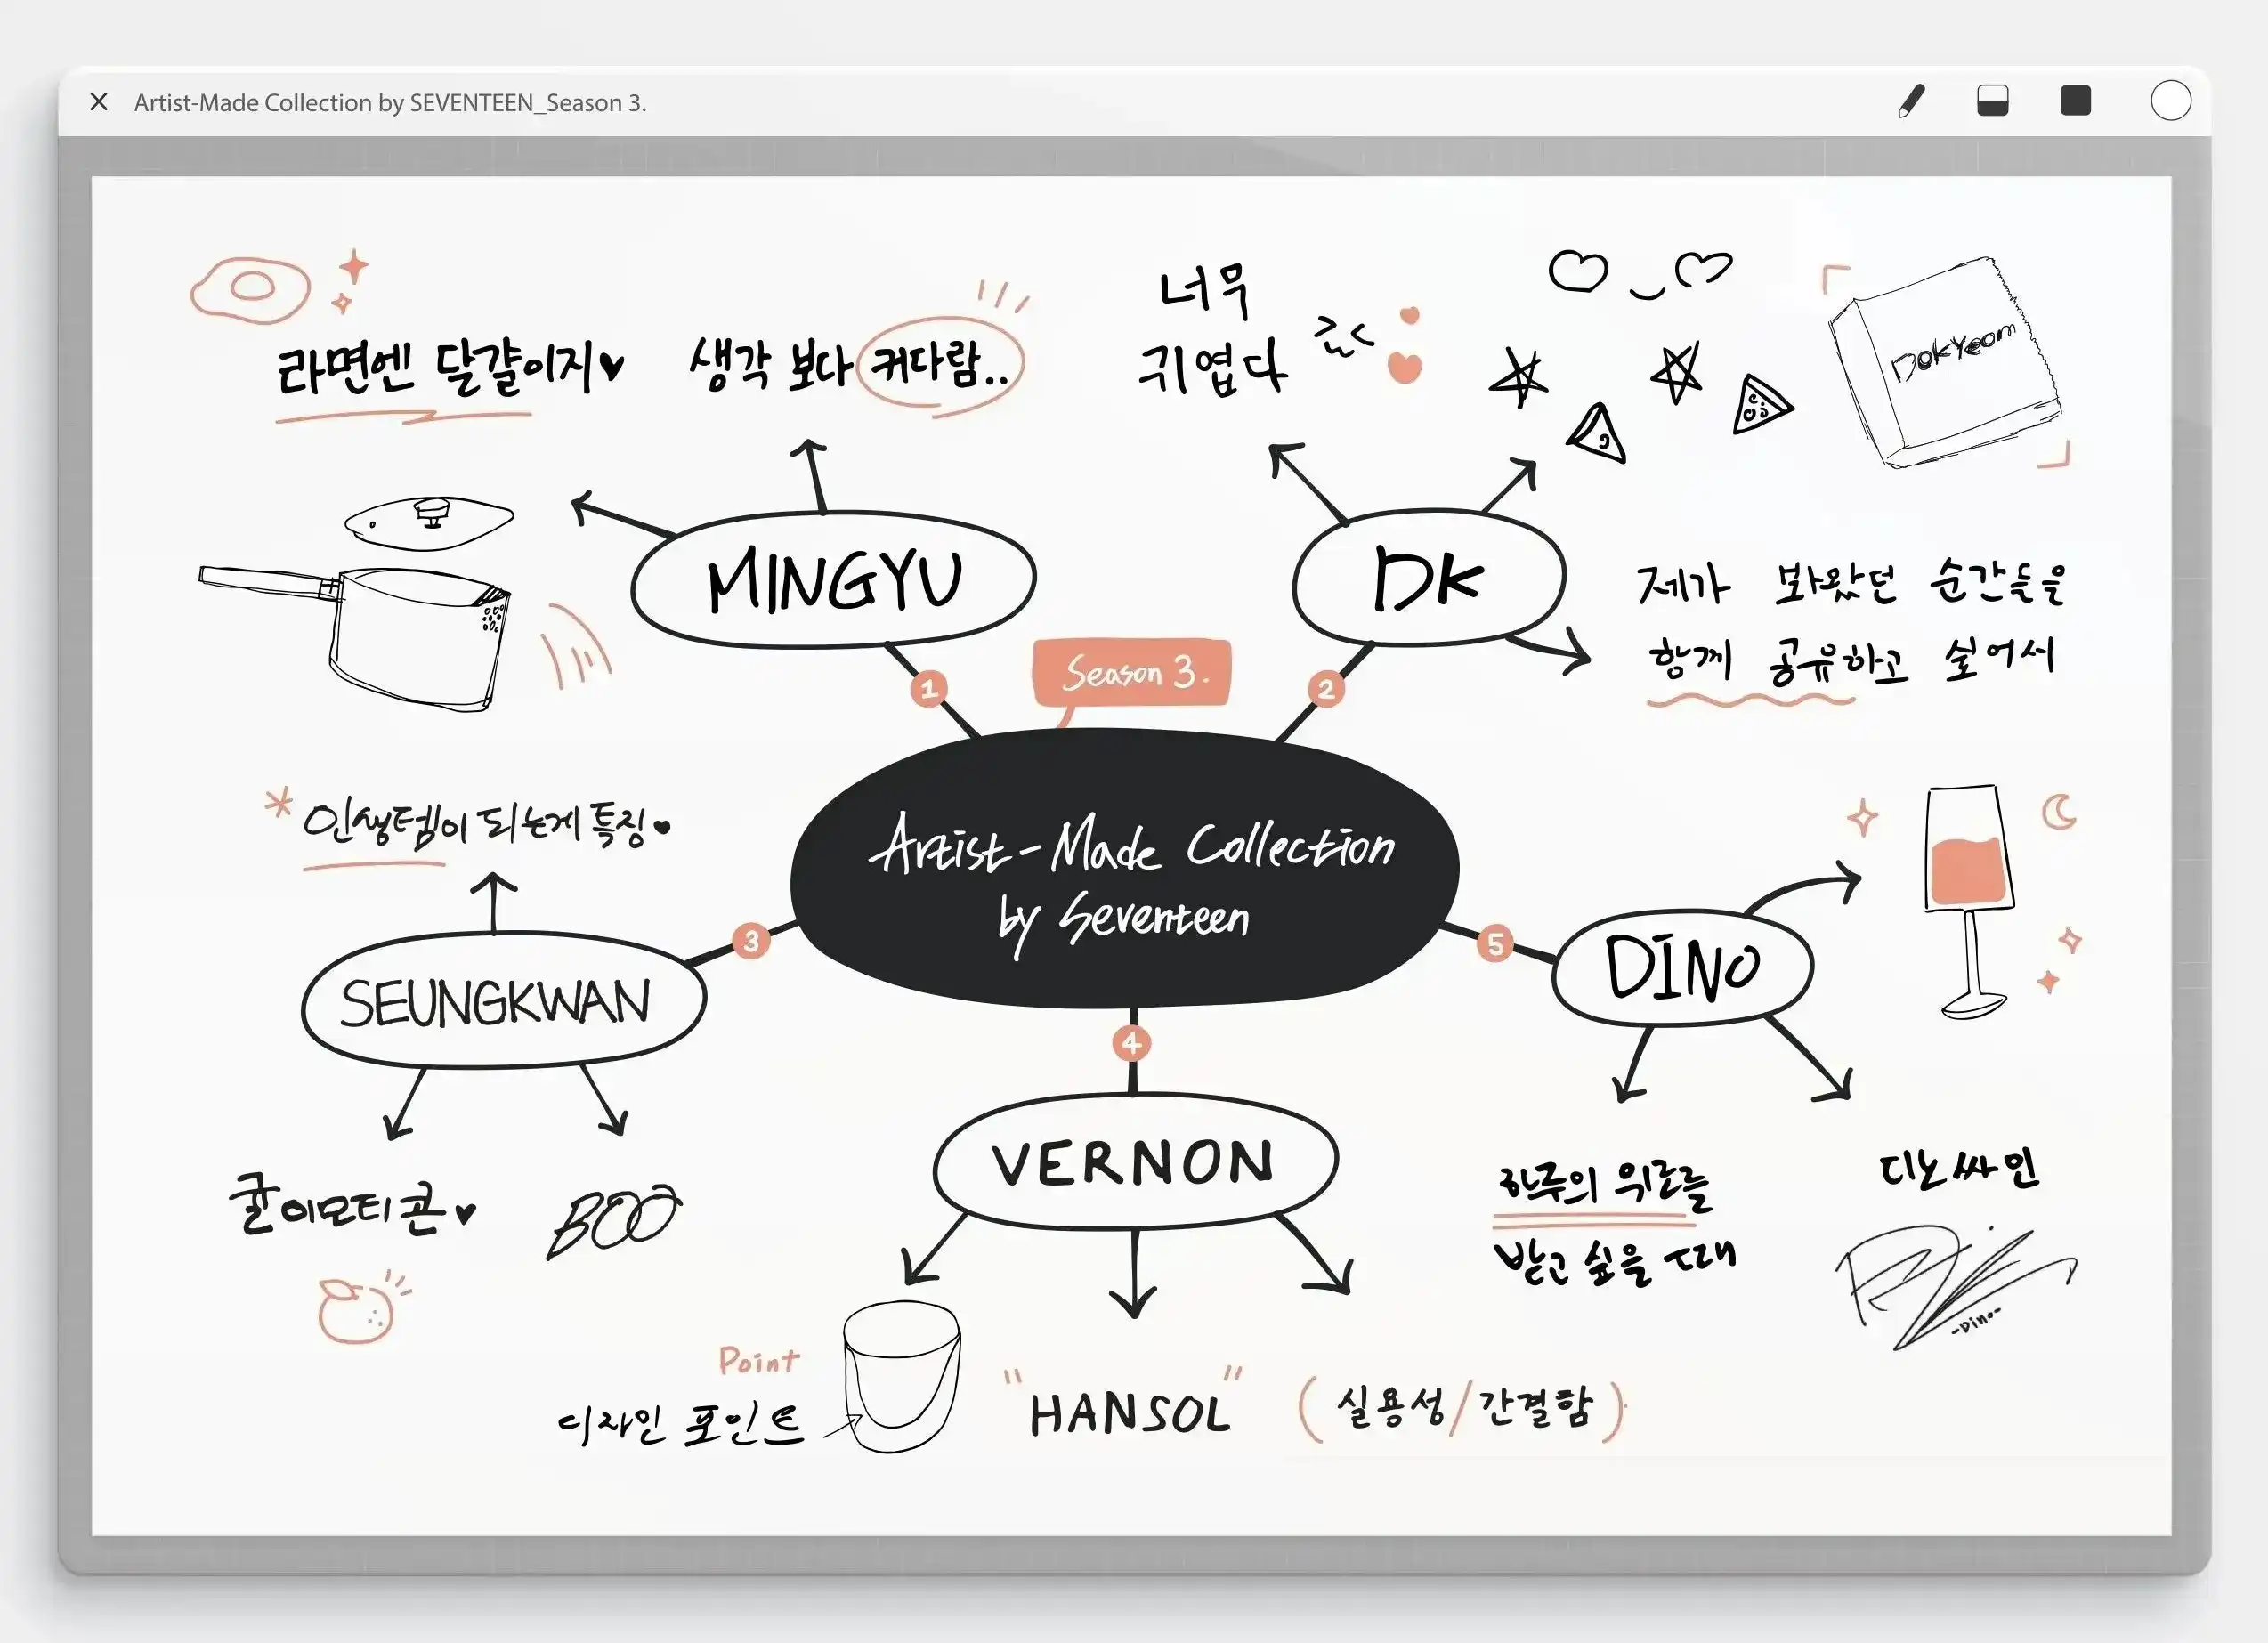 Artist-Made Collection by SEVENTEEN_Season 3.
라면엔 달걀이지♥
생각 보다 커다람..
MINGYU
너무
귀엽다
DokYeom
DK
제가 봐왔던 순간들을
함께 공유하고 싶어서
1
Season 3.
2
Artist-Made Collection
by Seventeen
* 인생템이 되는게 특징♥
3
SEUNGKWAN
귤이모티콘♥
BOO
4
VERNON
Point
디자인 포인트
"HANSOL"
(실용성/간결함)
5
DINO
하루의 위로를
받고 싶을 때
디노싸인
-Dino-